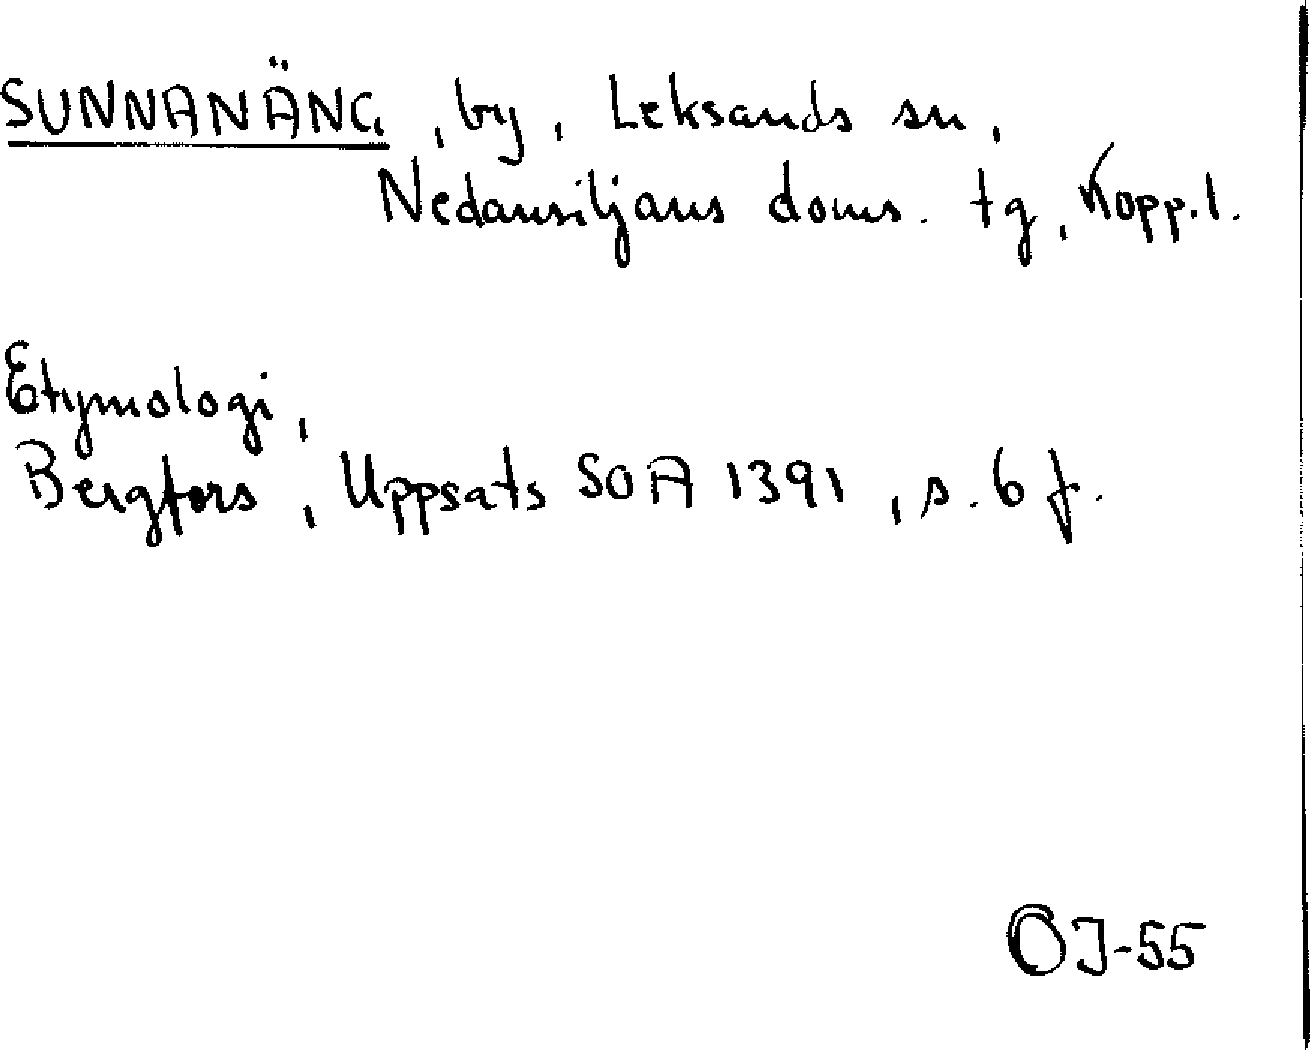 SUNNANÄNG, by, Leksands sn,
Nedansiljans doms. tg, Kopp.l.
Etymologi,
Bergfors, Uppsats SOA 1391, s. 6 f.
OJ-55